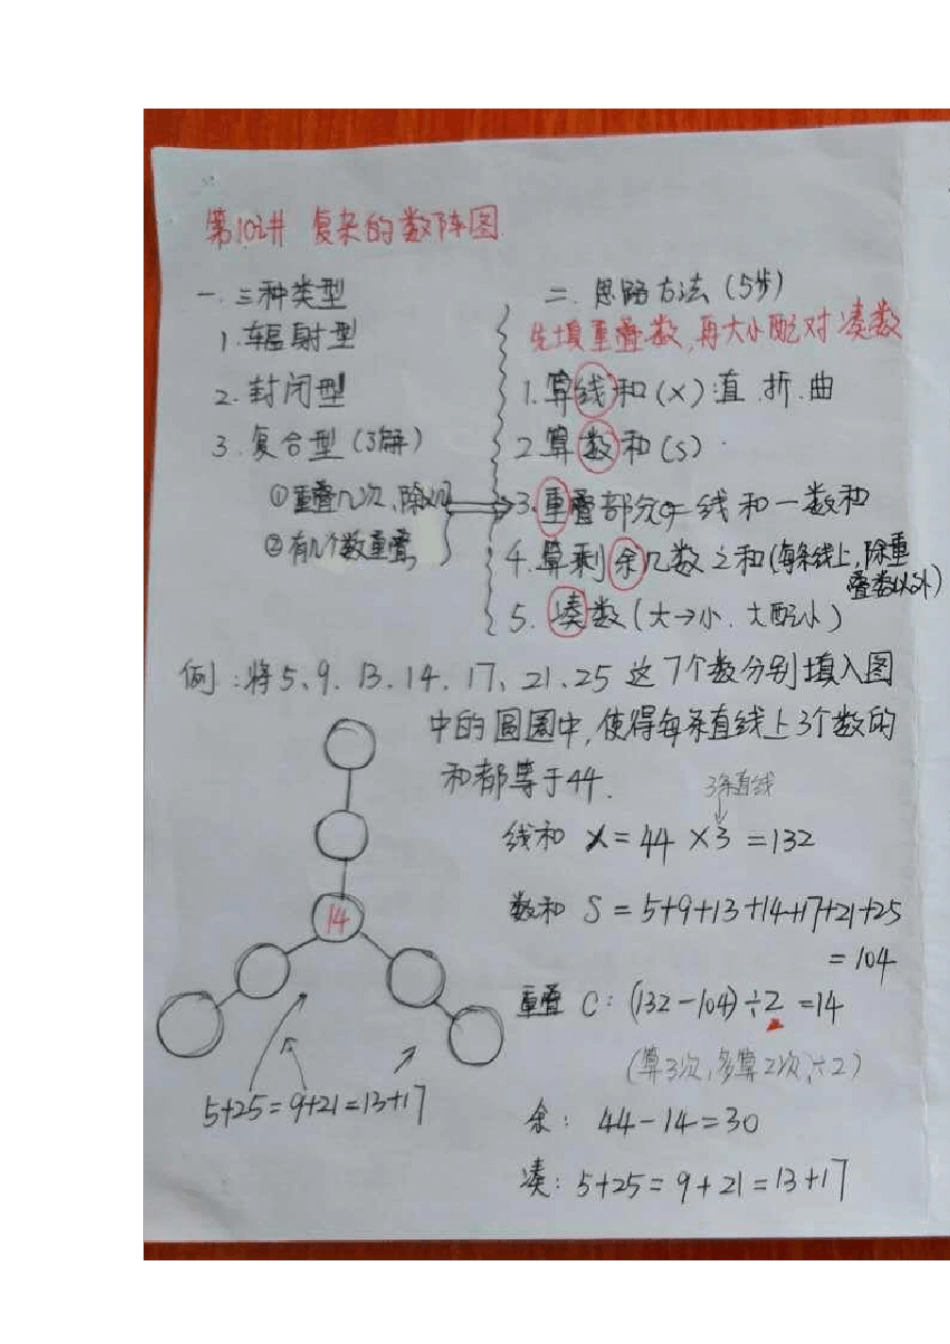 第10讲 复杂的数阵图
一. 三种类型
1. 辐射型
2. 封闭型
3. 复合型(3解)
①重叠几次,除以几
②有几个数重叠,
二. 思路方法(5步)
先填重叠数,再大小配对凑数
1. 算线和(x)直.折.曲
2 算数和(S)
3. 重叠部分C=线和-数和
4. 算剩余几数之和(每条线上,除重
叠数以外)
5. 凑数(大→小.大配小)
例:将5、9、13、14、17、21、25 这7个数分别填入图
中的圆圈中,使得每条直线上3个数的
和都等于44.
3条直线
线和 x=44×3=132
数和 S=5+9+13+14+17+21+25
=104
重叠 C:(132-104)÷2=14
(算3次,多算2次,÷2)
余: 44-14=30
凑: 5+25=9+21=13+17
14
5+25=9+21=13+17